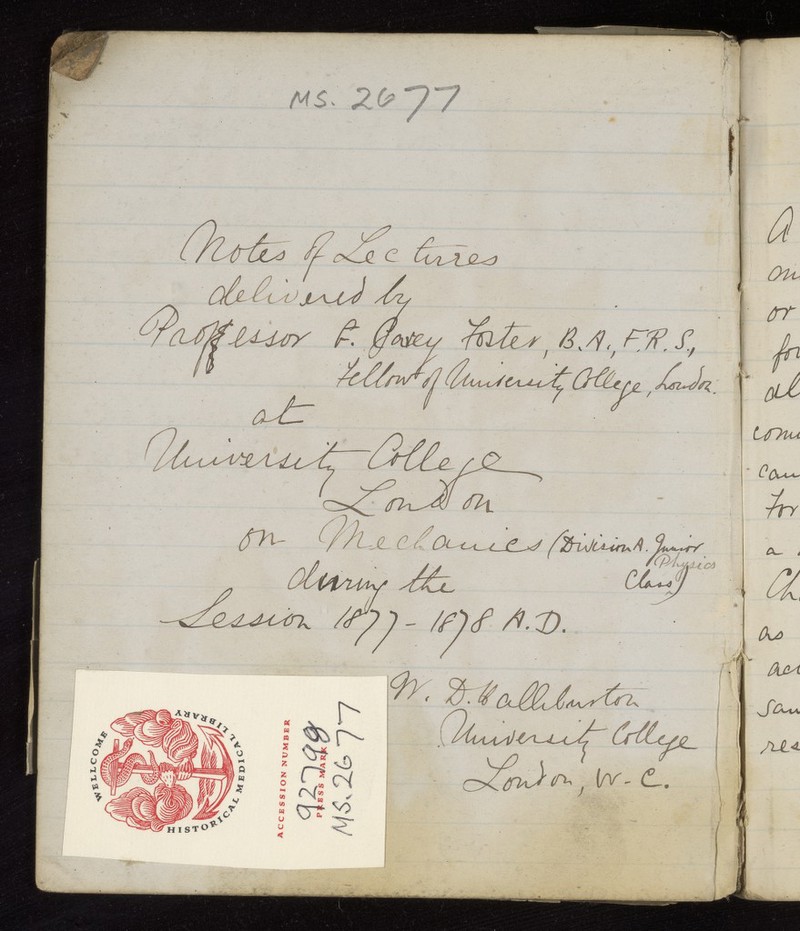 MS. 2677
Notes of Lectures
delivered by
Professor G. Carey Foster, B.A., F.R.S.,
Fellow of University College, London.
at
University College
London
on Mechanics (Division A. Junior
Physics
Class)
during the
Session 1877-1878 A.D.
W. D. Halliburton
University College
London, W.C.
WELLCOME
HISTORICAL MEDICAL LIBRARY
ACCESSION NUMBER
92799
PRESS MARK
MS. 2677
A
or
as